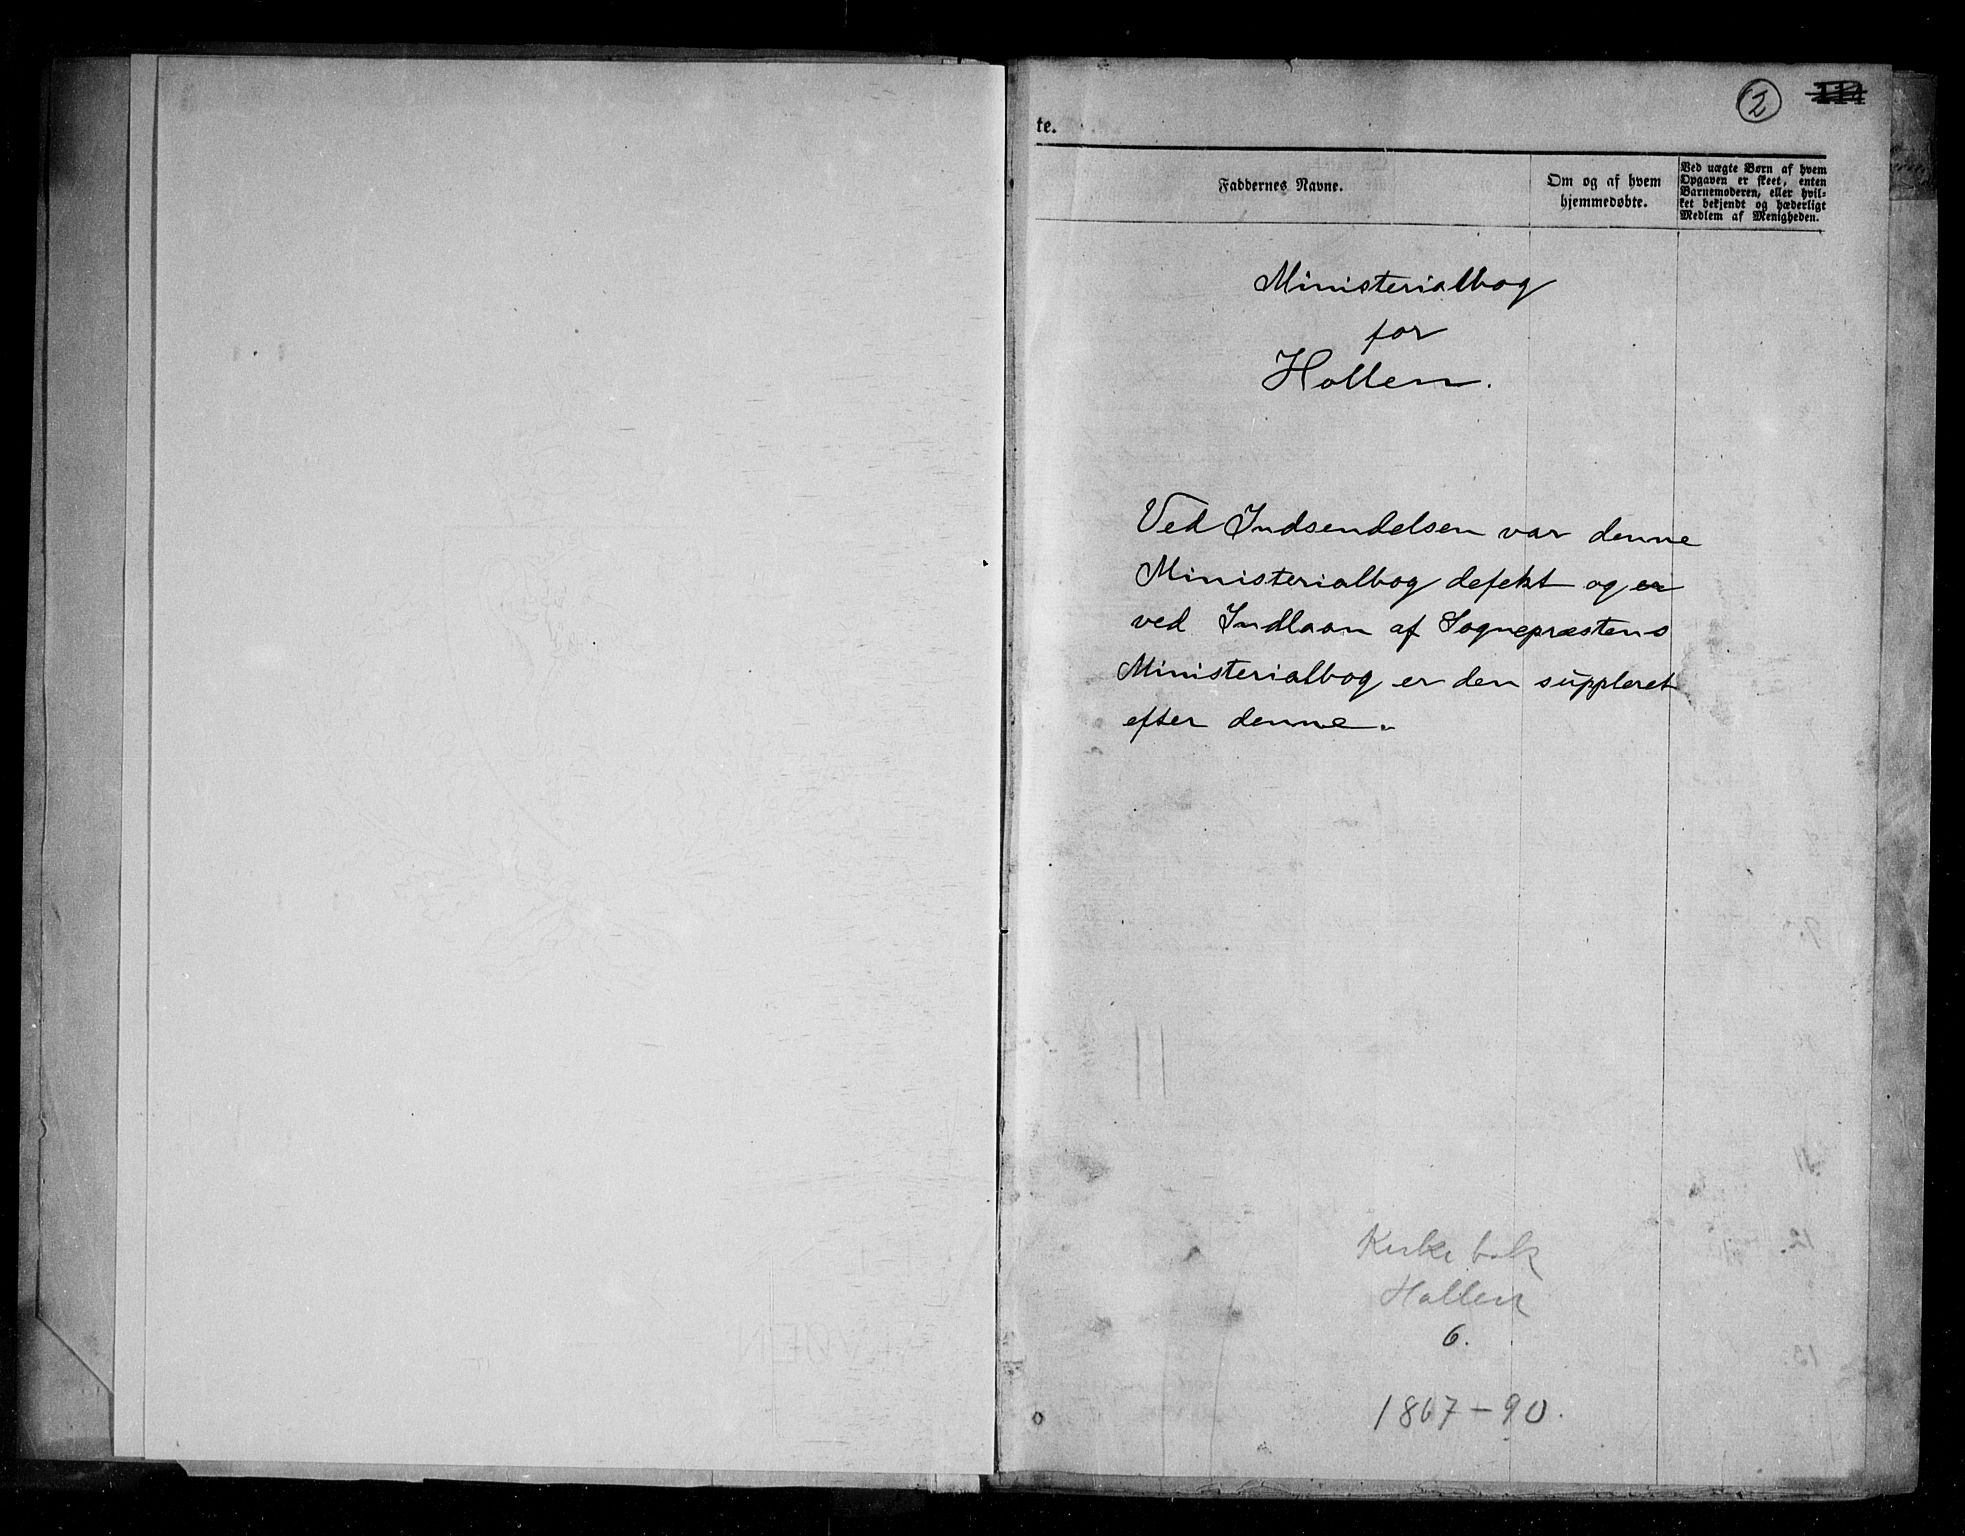 2
te.
Faddernes Navne.
Om og af hvem
hjemmedøbte.
Ved uægte Børn af hvem
Opgaven er skeet, enten
Barnemoderen, eller hvil-
ket bekjendt og hæderligt
Medlem af Menigheden.
Ministerialbog
for
Hollen.
Ved Indsendelsen var denne
Ministerialbog defekt og er
ved Indlaan af Sognepræstens
Ministerialbog er den suppleret
efter denne.
Kirkebok
Hollen
6.
1867-90.